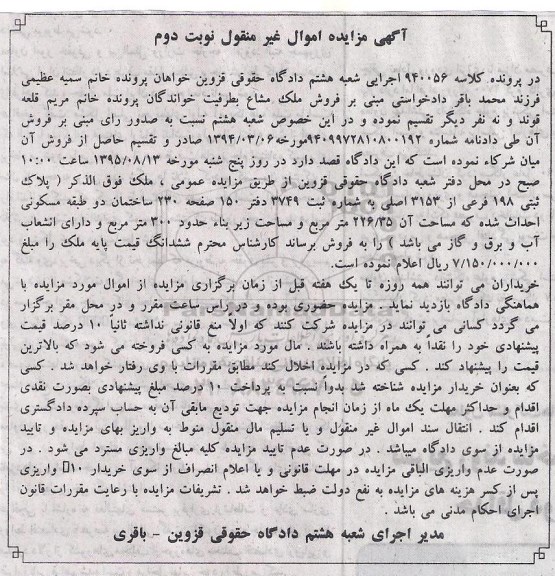 آگهی مزایده اموال غیر منقول نوبت دوم
در پرونده کلاسه ۹۴۰۰۵۶ اجرایی شعبه هشتم دادگاه حقوقی قزوین خواهان پرونده خانم سمیه عظیمی
فرزند محمد باقر دادخواستی مبنی بر فروش ملک مشاع بطرفیت خواندگان پرونده خانم مریم قلعه
قوند و نه نفر دیگر تقسیم نموده و در این خصوص شعبه هشتم نسبت به صدور رای مبنی بر فروش
آن طی دادنامه شماره ۹۴۰۹۹۷۲۸۱۰۸۰۰۱۹۲مورخه۱۳۹۴/۰۳/۰۶ صادر و تقسیم حاصل از فروش آن
میان شرکاء نموده است که این دادگاه قصد دارد در روز پنج شنبه مورخه ۱۳۹۵/۰۸/۱۳ ساعت ۱۰:۰۰
صبح در محل دفتر شعبه دادگاه حقوقی قزوین از طریق مزایده عمومی ، ملک فوق الذکر ( پلاک
ثبتی ۱۹۸ فرعی از ۳۱۵۳ اصلی به شماره ثبت ۳۷۴۹ دفتر ۱۵۰ صفحه ۲۳۰ ساختمان دو طبقه مسکونی
احداث شده که مساحت آن ۲۲۶/۳۵ متر مربع و مساحت زیر بناء حدود ۳۰۰ متر مربع و دارای انشعاب
آب و برق و گاز می باشد ) را به فروش برساند کارشناس محترم ششدانگ قیمت پایه ملک را مبلغ
۷/۱۵۰/۰۰۰/۰۰۰ ریال اعلام نموده است.
خریداران می توانند همه روزه تا یک هفته قبل از زمان برگزاری مزایده از اموال مورد مزایده با
هماهنگی دادگاه بازدید نماید . مزایده حضوری بوده و در راس ساعت مقرر و در محل مقر برگزار
می گردد کسانی می توانند در مزایده شرکت کنند که اولاً منع قانونی نداشته ثانیاً ۱۰ درصد قیمت
پیشنهادی خود را نقداً به همراه داشته باشند . مال مورد مزایده به کسی فروخته می شود که بالاترین
قیمت را پیشنهاد کند . کسی که در مزایده اخلال کند مطابق مقررات با وی رفتار خواهد شد . کسی
که بعنوان خریدار مزایده شناخته شد بدواً نسبت به پرداخت ۱۰ درصد مبلغ پیشنهادی بصورت نقدی
اقدام و حداکثر مهلت یک ماه از زمان انجام مزایده جهت تودیع مابقی آن به حساب سپرده دادگستری
اقدام کند . انتقال سند اموال غیر منقول و یا تسلیم مال منقول منوط به واریز بهای مزایده و تایید
مزایده از سوی دادگاه میباشد . در صورت عدم تایید مزایده کلیه مبالغ واریزی مسترد می شود . در
صورت عدم واریزی الباقی مزایده در مهلت قانونی و یا اعلام انصراف از سوی خریدار ۱۰ واریزی
پس از کسر هزینه های مزایده به نفع دولت ضبط خواهد شد . تشریفات مزایده با رعایت مقررات قانون
اجرای احکام مدنی می باشد .
مدیر اجرای شعبه هشتم دادگاه حقوقی قزوین - باقری